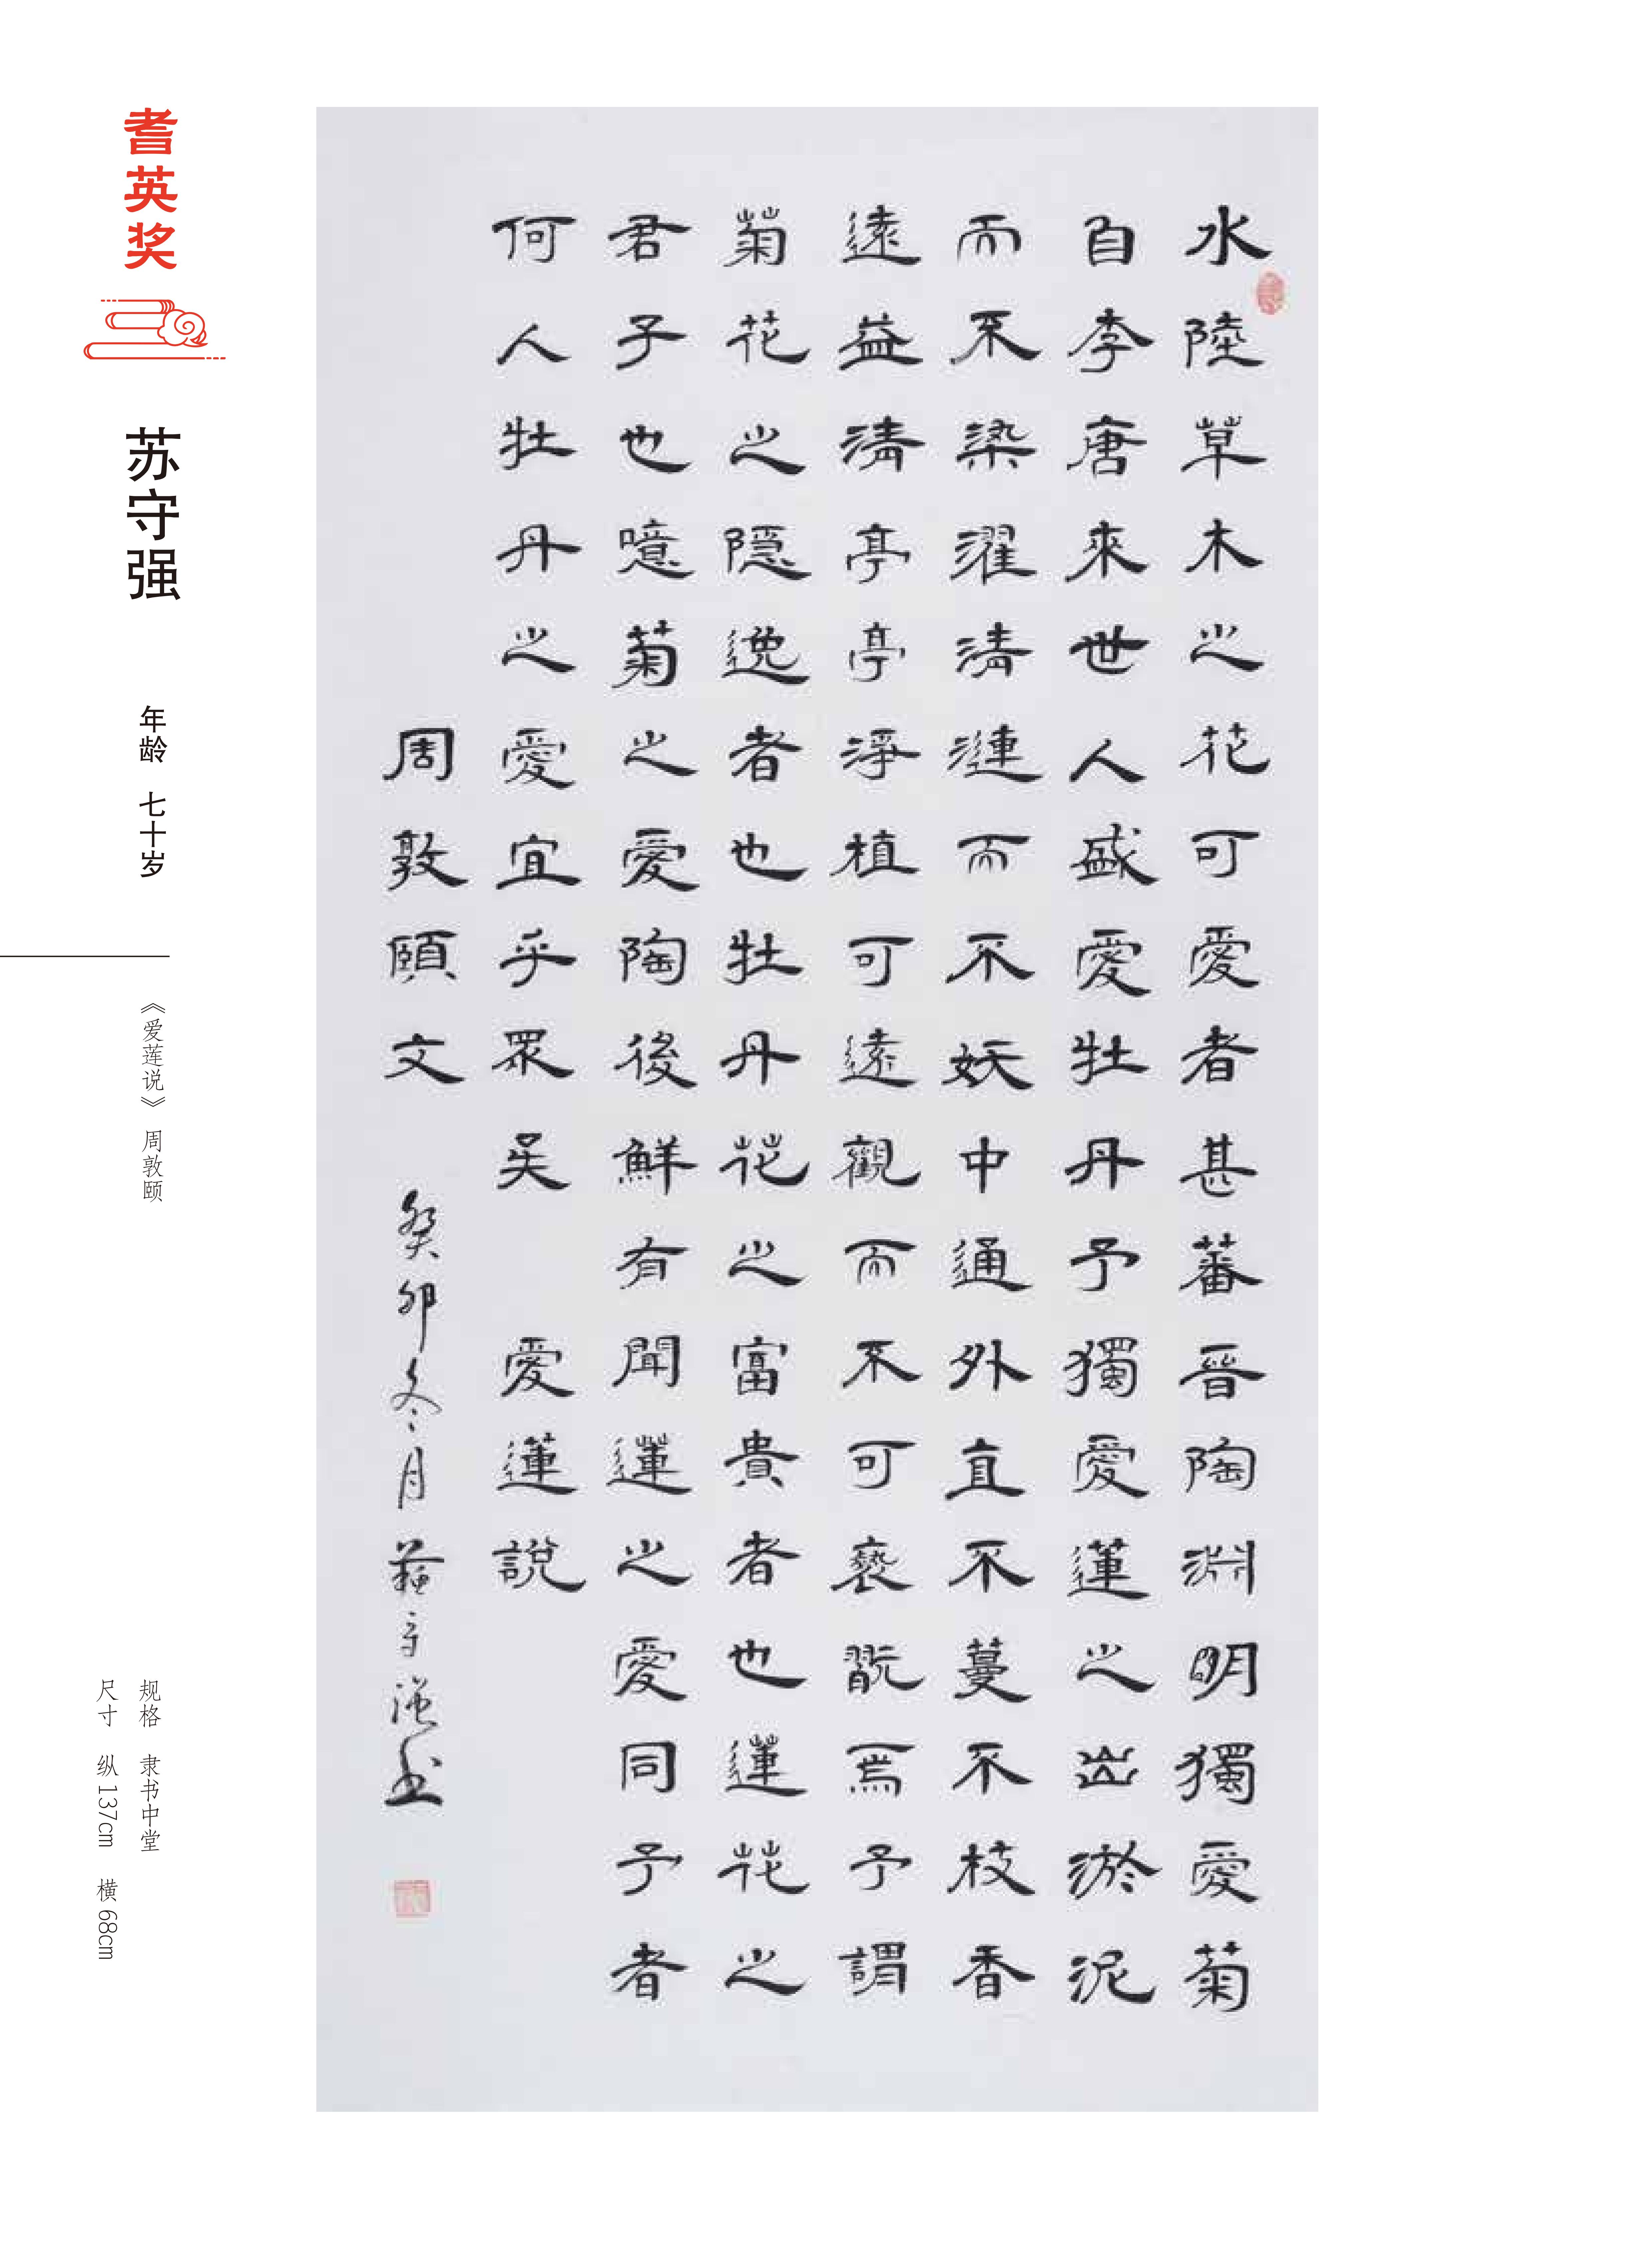 耆英奖
苏守强
年龄 七十岁
《爱莲说》 周敦颐
规格 隶书中堂
尺寸 纵137cm 横68cm
水陸草木之花可愛者甚蕃晉陶淵明獨愛菊
自李唐來世人盛愛牡丹予獨愛蓮之出淤泥
而不染濯清漣而不妖中通外直不蔓不枝香
遠益清亭亭淨植可遠觀而不可褻翫焉予謂
菊花之隱逸者也牡丹花之富貴者也蓮花之
君子也噫菊之愛陶後鮮有聞蓮之愛同予者
何人牡丹之愛宜乎眾矣 愛蓮說
周敦頤文 癸卯冬月蘇守強书